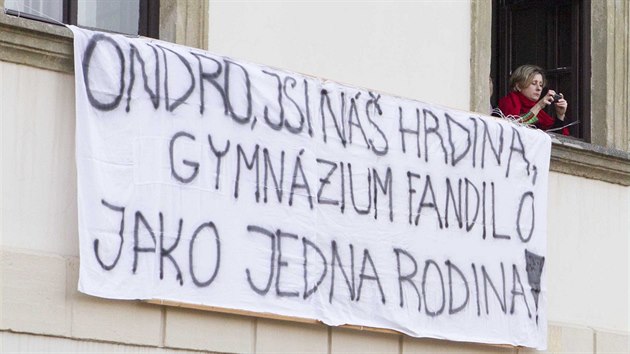 ONDRO, JSI NÁŠ HRDINA,
GYMNÁZIUM FANDILO
JAKO JEDNA RODINA!